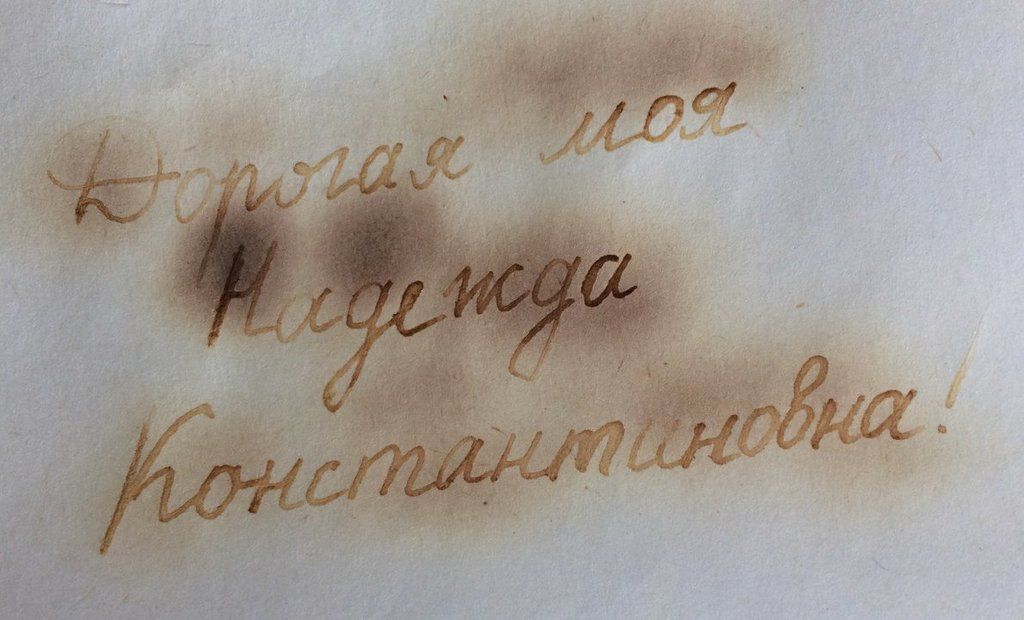 Дорогая моя
Надежда
Константиновна!